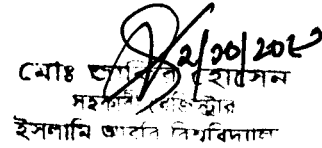 ২/১০/২০২
মোঃ হোসেন
সহকারী রেজিস্ট্রার
ইসলামি আরবি বিশ্ববিদ্যালয়